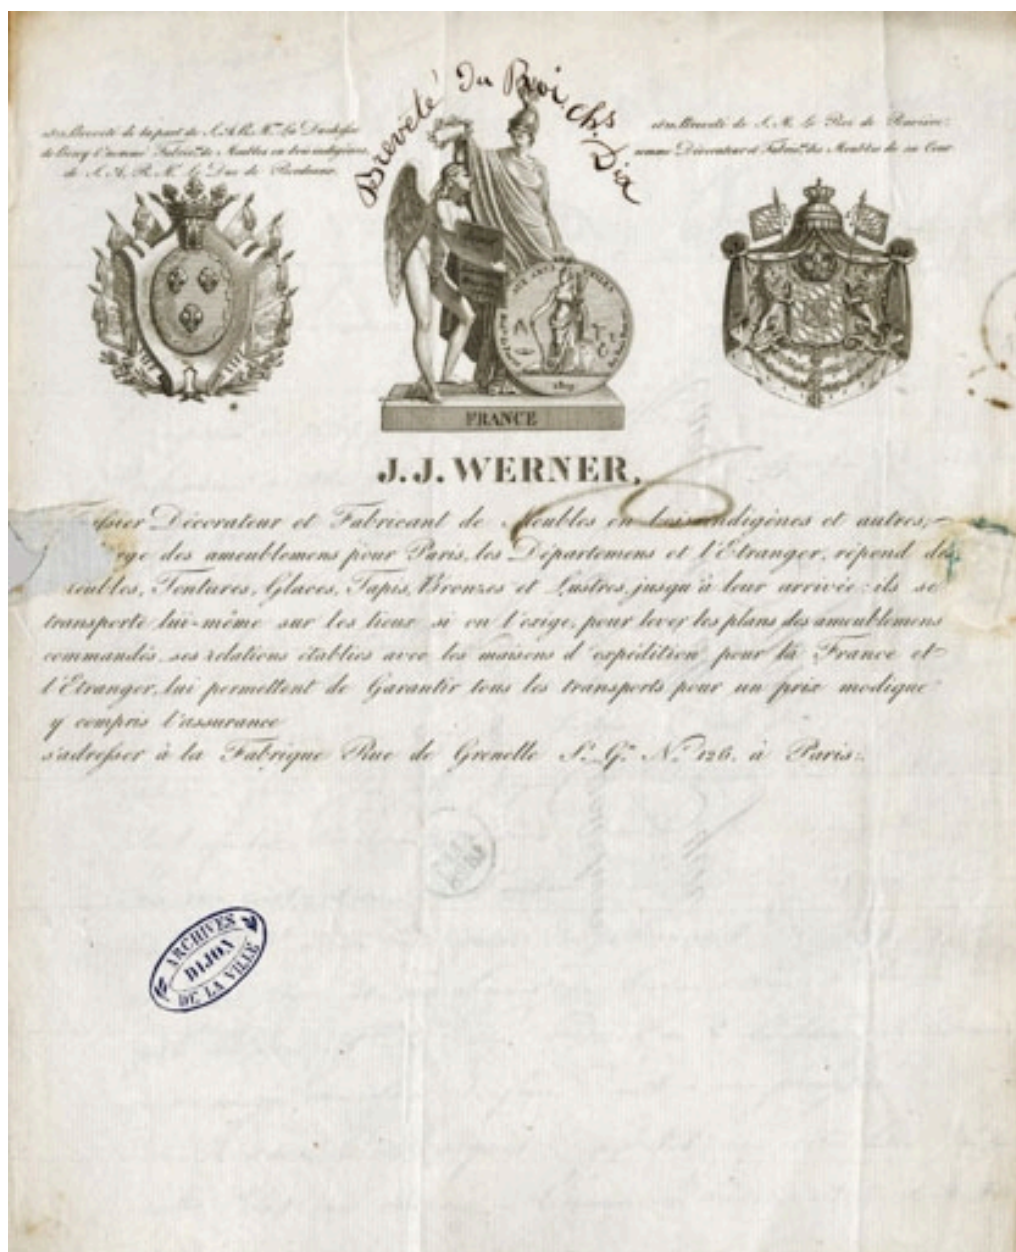 Breveté du Roi Chs. Dix
et du Breveté de la part de S.A.R. Mme. La Duchesse
de Berry Fabrict. de Meubles en bois indigènes,
de S. A. R. M. Le Duc de Bordeaux.
et du Breveté de S. M. Le Roi de Bavière:
comme Décorateur et Fabrict. des Meubles de sa Cour
AUX ARTS UTILES
1819
FRANCE
J. J. WERNER,
Décorateur et Fabricant de Meubles en bois indigènes et autres,
des ameublemens pour Paris, les Départemens et l'Etranger, répond des
Meubles, Tentures, Glaces, Tapis, Bronzes et Lustres, jusqu'à leur arrivée: ils se
transporte lui-même sur les lieux si on l'exige, pour lever les plans des ameublemens
commandés, ses relations établies avec les maisons d'expédition pour la France et
l'Etranger, lui permettent de Garantir tous les transports pour un prix modique
y compris l'assurance
s'adresser à la Fabrique Rue de Grenelle St. Gn. No. 126. à Paris:.
ARCHIVES
DIJON
DE LA VILLE